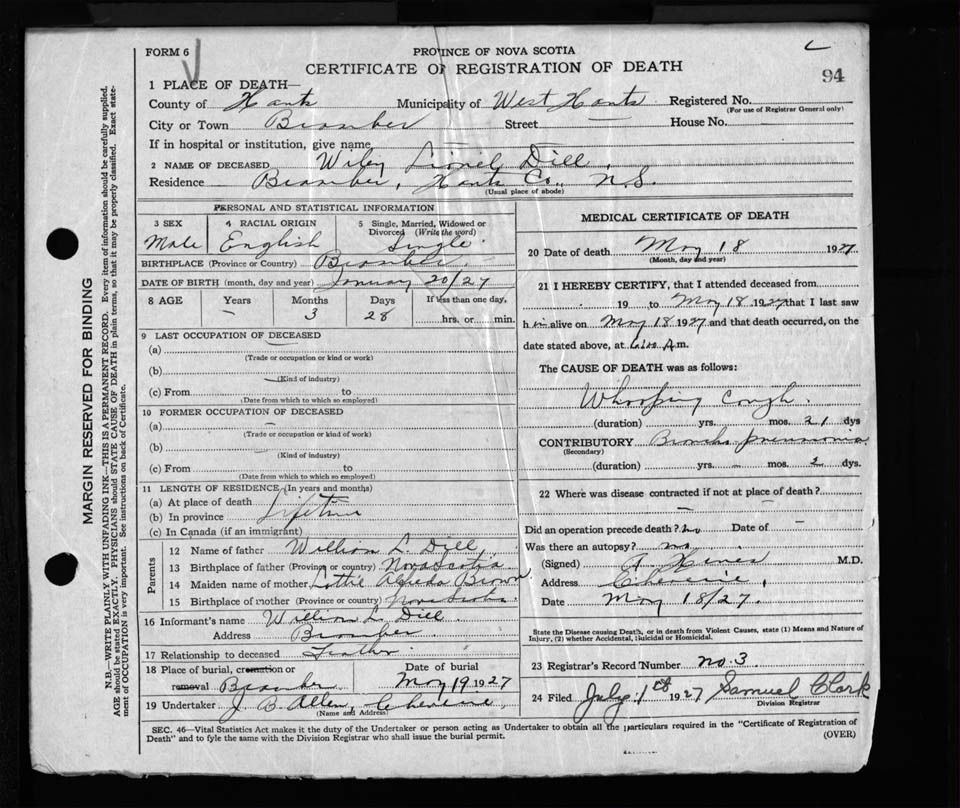 FORM 6
PROVINCE OF NOVA SCOTIA
94
CERTIFICATE OF REGISTRATION OF DEATH
1 PLACE OF DEATH—
County of Hants Municipality of West Hants Registered No.
(For use of Registrar General only)
City or Town Bramber Street — House No.
If in hospital or institution, give name
2 NAME OF DECEASED Wiley Lionel Dill.
Residence Bramber, Hants Co., N.S.
(Usual place of abode)
PERSONAL AND STATISTICAL INFORMATION
3 SEX 4 RACIAL ORIGIN 5 Single, Married, Widowed or Divorced (Write the word)
Male English Single
BIRTHPLACE (Province or Country) Bramber.
DATE OF BIRTH (month, day and year) January 20/27
8 AGE Years Months Days If less than one day,
— 3 28 hrs. or min.
9 LAST OCCUPATION OF DECEASED
(a)
(Trade or occupation or kind or work)
(b)
(Kind of industry)
(c) From to
(Date from which to which so employed)
10 FORMER OCCUPATION OF DECEASED
(a) —
(Trade or occupation or kind of work)
(b)
(Kind of industry)
(c) From to
(Date from which so employed)
11 LENGTH OF RESIDENCE (In years and months)
(a) At place of death
(b) In province Lifetime
(c) In Canada (if an immigrant)
Parents
12 Name of father William L. Dill,
13 Birthplace of father (Province or country) Nova Scotia
14 Maiden name of mother Lottie Alfreda Brown
15 Birthplace of mother (Province or country) Nova Scotia.
16 Informant's name William L. Dill.
Address Bramber
17 Relationship to deceased Father
18 Place of burial, cremation or Date of burial
removal Bramber May 19, 1927
19 Undertaker J. B. Allen, Cheverie,
(Name and Address)
MEDICAL CERTIFICATE OF DEATH
20 Date of death May 18 1927
(Month, day and year)
21 I HEREBY CERTIFY, that I attended deceased from
19 to May 18, 1927 that I last saw
h im alive on May 18 1927 and that death occurred, on the
date stated above, at A.m.
The CAUSE OF DEATH was as follows:
Whooping Cough.
(duration) yrs. mos. 21 dys
CONTRIBUTORY Broncho pneumonia
(Secondary)
(duration) yrs. — mos. 2 dys.
22 Where was disease contracted if not at place of death?
—
Did an operation precede death? no Date of —
Was there an autopsy? no
(Signed) M.D.
Address Cheverie,
Date May 18/27.
State the Disease causing Death, or in death from Violent Causes, state (1) Means and Nature of
Injury, (2) whether Accidental, Suicidal or Homicidal.
23 Registrar's Record Number no. 3
24 Filed July 1st 1927 Samuel Clark
Division Registrar
SEC. 46—Vital Statistics Act makes it the duty of the Undertaker or person acting as Undertaker to obtain all the particulars required in the "Certificate of Registration of
Death" and to fyle the same with the Division Registrar who shall issue the burial permit.
(OVER)
MARGIN RESERVED FOR BINDING
N.B.—WRITE PLAINLY WITH UNFADING INK—THIS IS A PERMANENT RECORD. Every item of information should be carefully supplied.
AGE should be stated EXACTLY. PHYSICIANS should STATE CAUSE OF DEATH in plain terms, so that it may be properly classified. Exact state-
ment of OCCUPATION is very important. See instructions on back of Certificate.